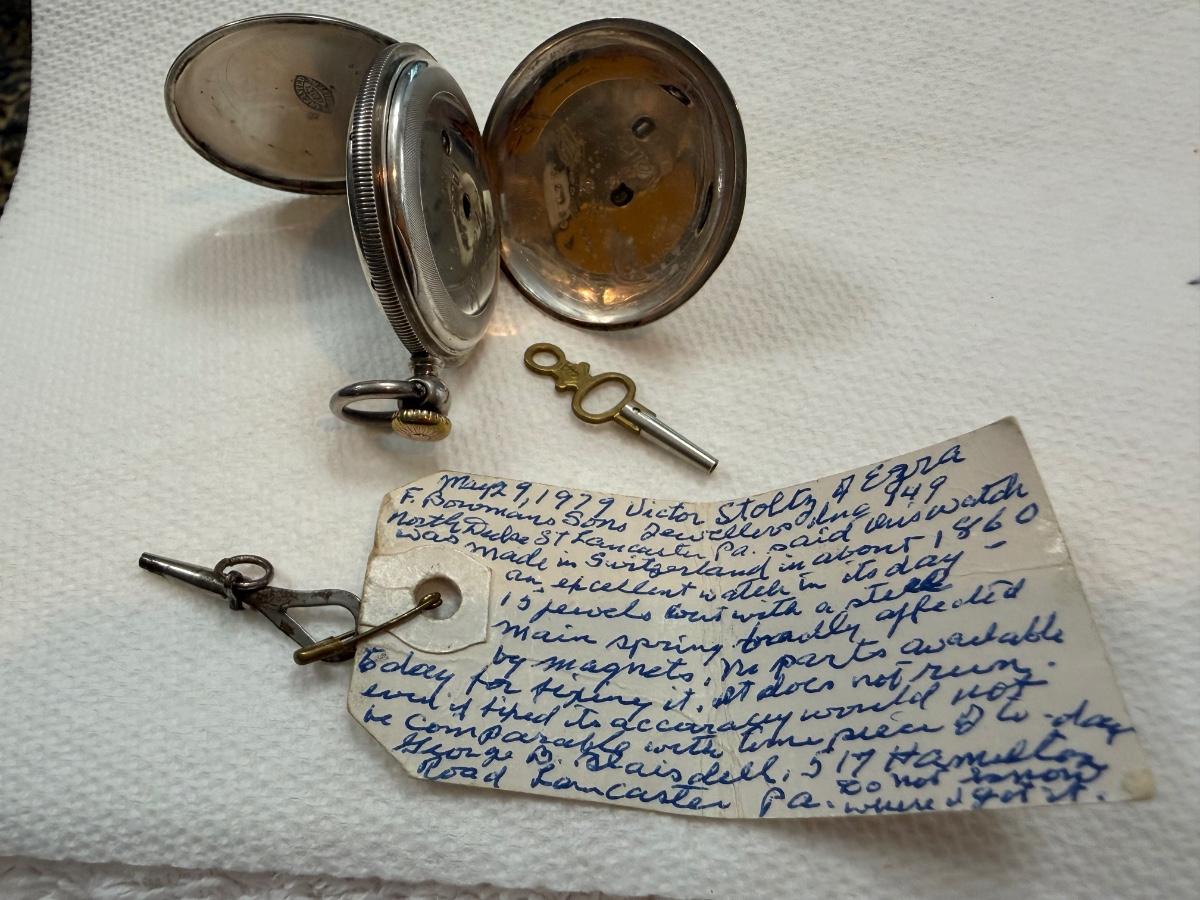 May 29, 1979 Victor Stoltz of Ezra
F. Bowmans Sons Jewellers Inc 949
North Duke St Lancaster Pa. said this watch
was made in Switzerland in about 1860
an excellent watch in its day -
15 jewels but with a steel
main spring badly affected
by magnets. No parts available
today for fixing it. It does not run.
even if fixed its accuracy would not
be comparable with time pieces of to-day
George D. Blaisdell, 517 Hamilton
Road Lancaster Pa. Do not know
where I got it.